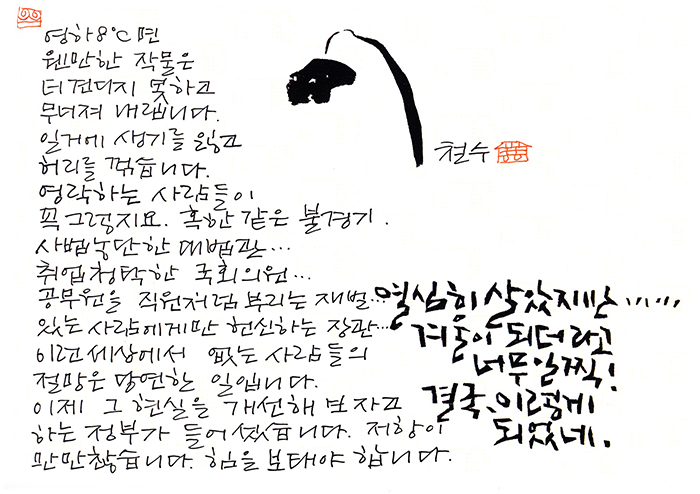 영하8℃면
웬만한 작물은
더 견디지 못하고
무너져 내립니다.
일거에 생기를 잃고
허리를 꺾습니다.
영락하는 사람들이
꼭 그렇지요. 혹한 같은 불경기.
사법농단한 대법관...
취업청탁한 국회의원...
공무원을 직원처럼 부리는 재벌...
있는 사람에게만 헌신하는 장판...
이런 세상에서 없는 사람들의
절망은 당연한 일입니다.
이제 그 현실을 개선해 보자고
하는 정부가 들어섰습니다. 저항이
만만찮습니다. 힘을 보태야 합니다.
철수
열심히 살았지만......
겨울이 되더라고
너무 일찍!
결국, 이렇게
되었네.